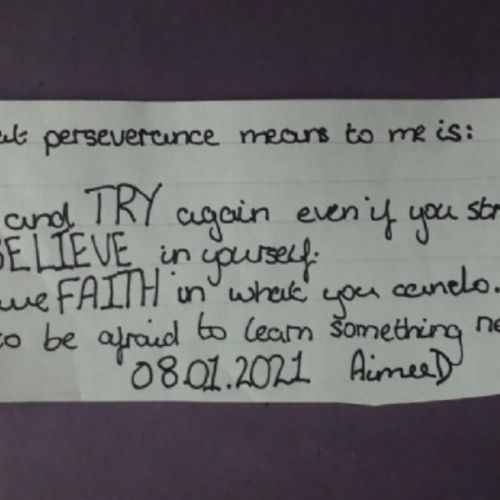 perseverance means to me is:
and TRY again even if you
BELIEVE in yourself.
FAITH in what you can do.
to be afraid to learn something
08.01.2021 AimeeD